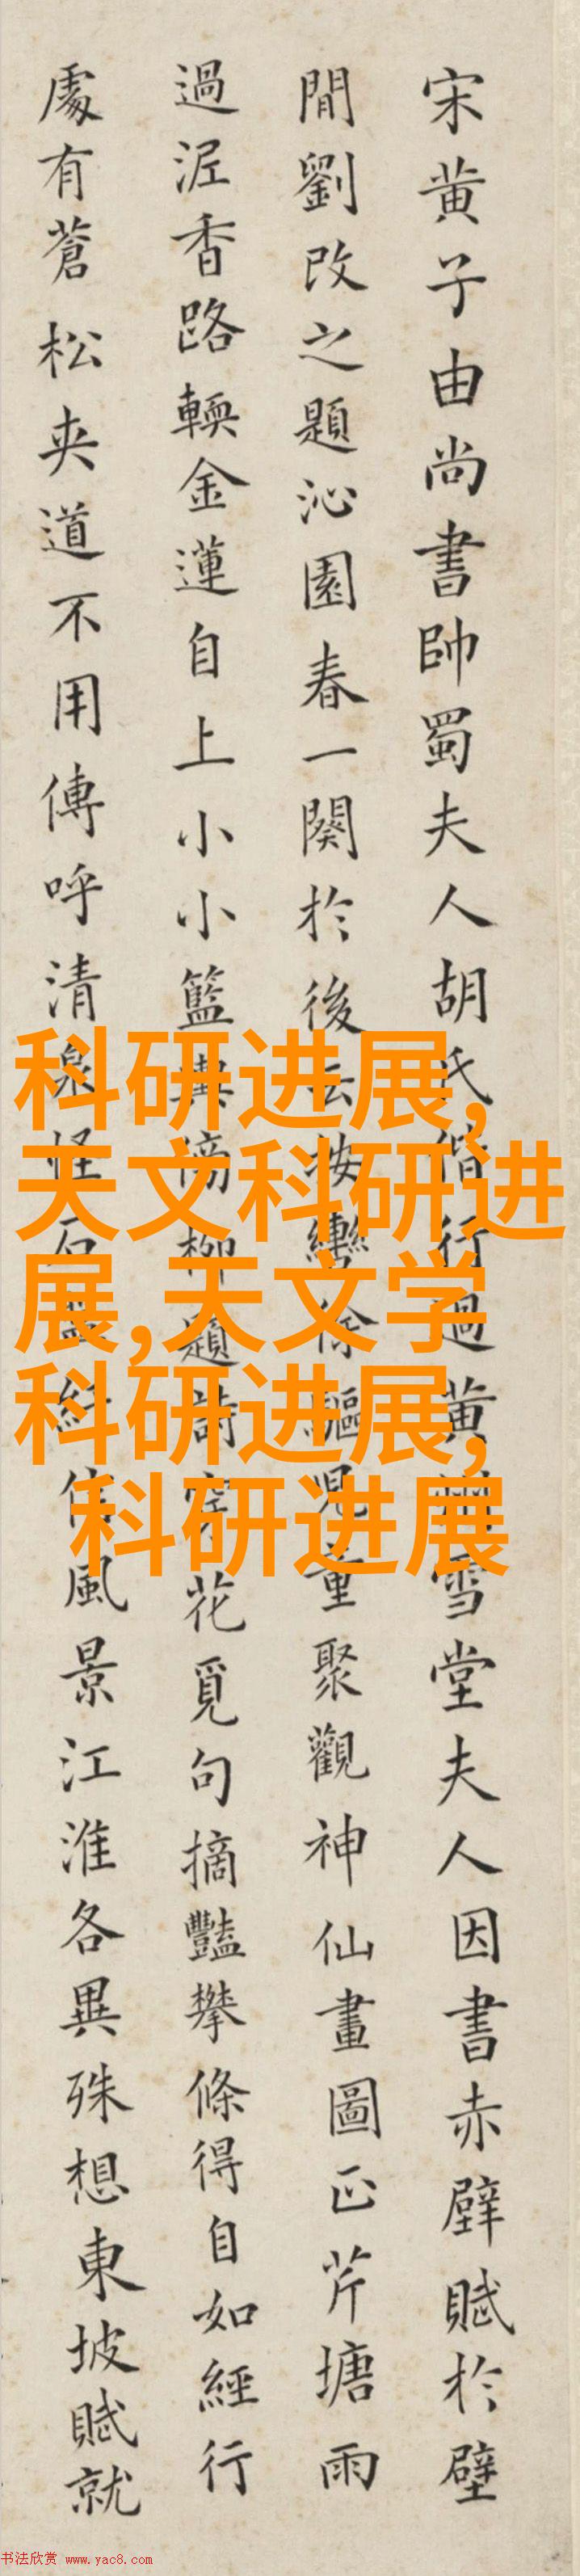 宋黄子由尚書帥蜀夫人胡氏偕行過黄雪堂夫人因書赤壁賦於壁
間劉改之題沁園春一闋於後云按轡徐驅兒童聚觀神仙畫圖正芹塘雨
過泥香路輭金蓮自上小小籃輿傍柳題詩穿花覓句摘豔攀條得自如經行
處有蒼松夾道不用傳呼清泉怪石盤紆信風景江淮各異殊想東坡賦就
科研进展,
天文科研进
展,天文学
科研进展,
科研进展
书法欣赏 www.yac8.com